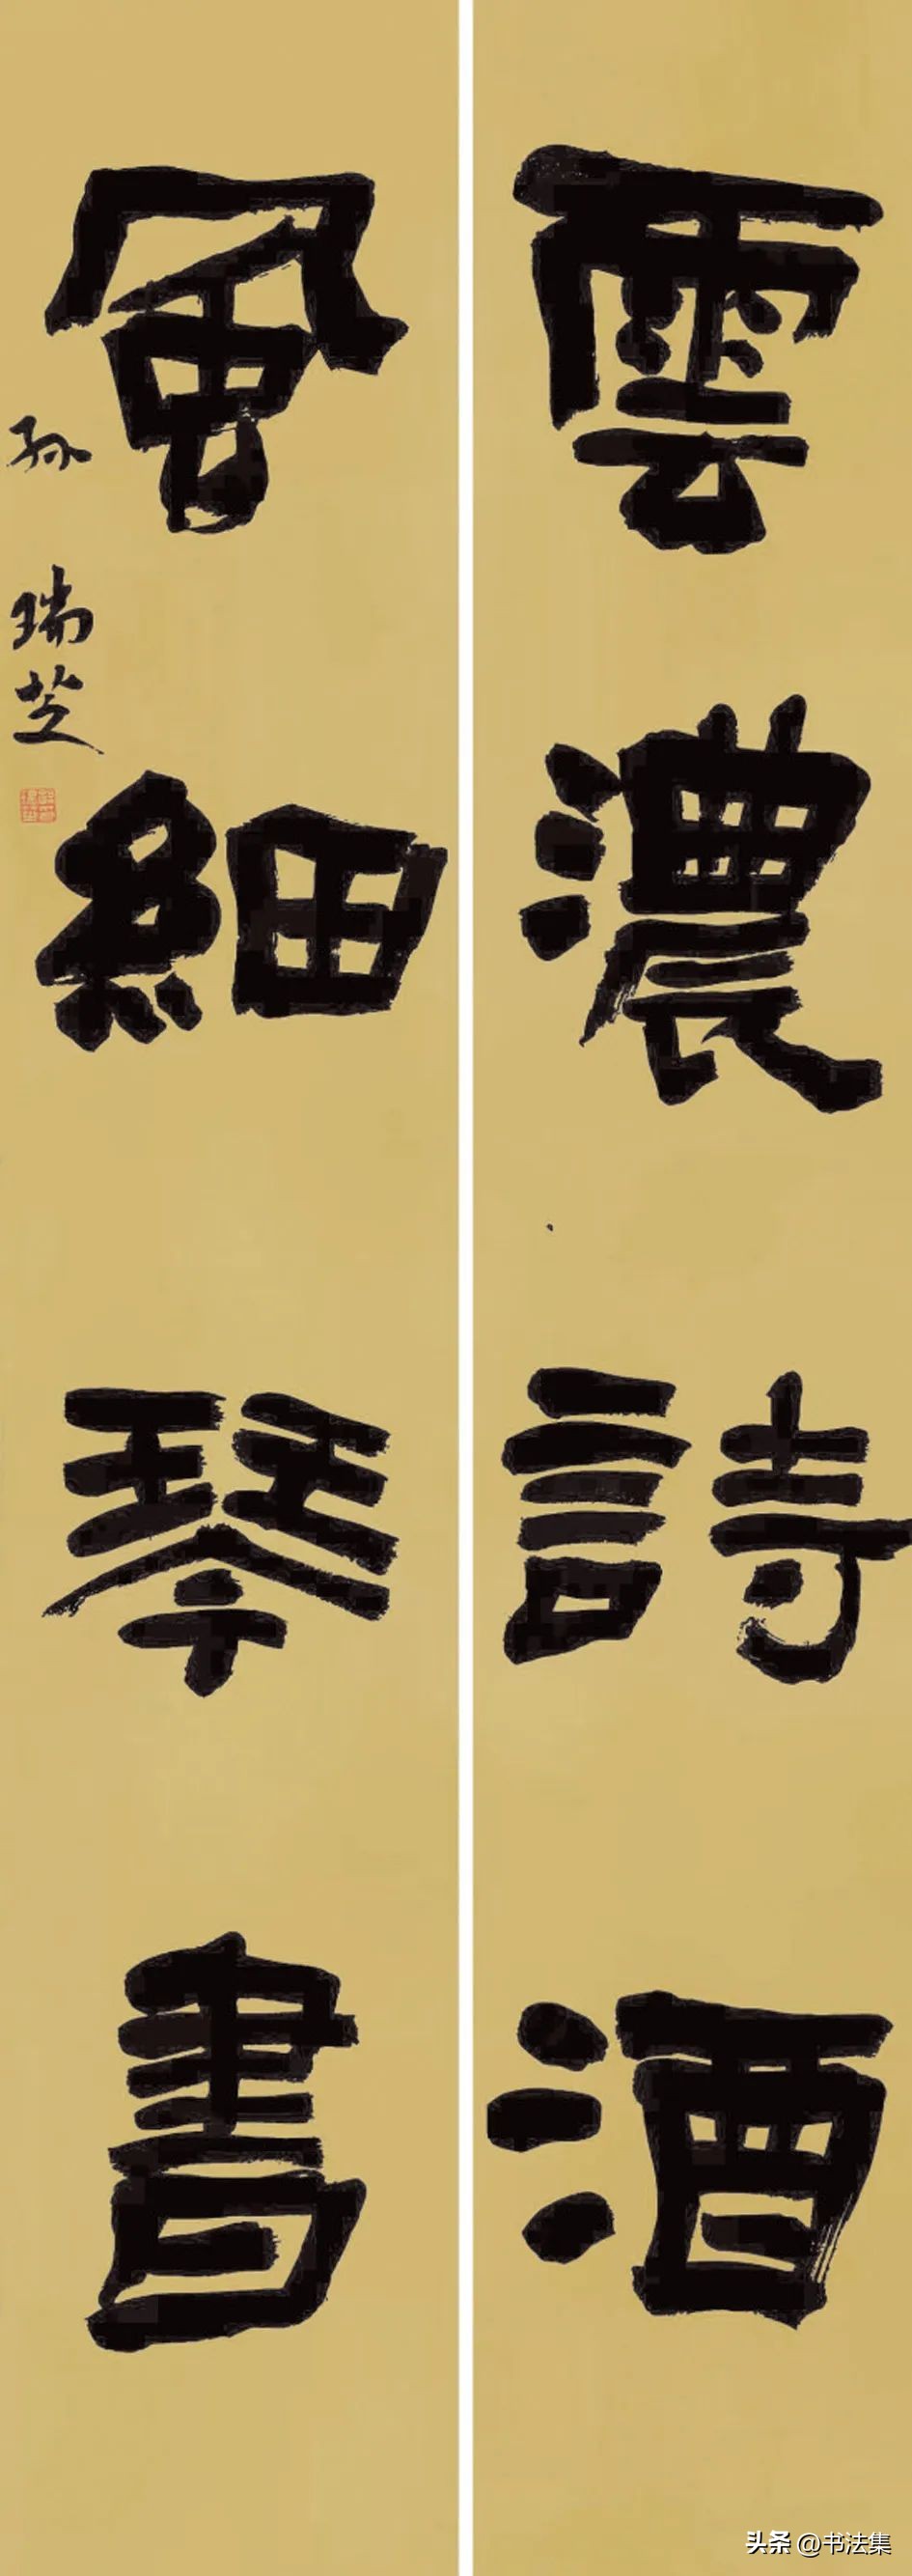 雲濃詩酒
風細琴書
孙瑞芝
头条 @书法集